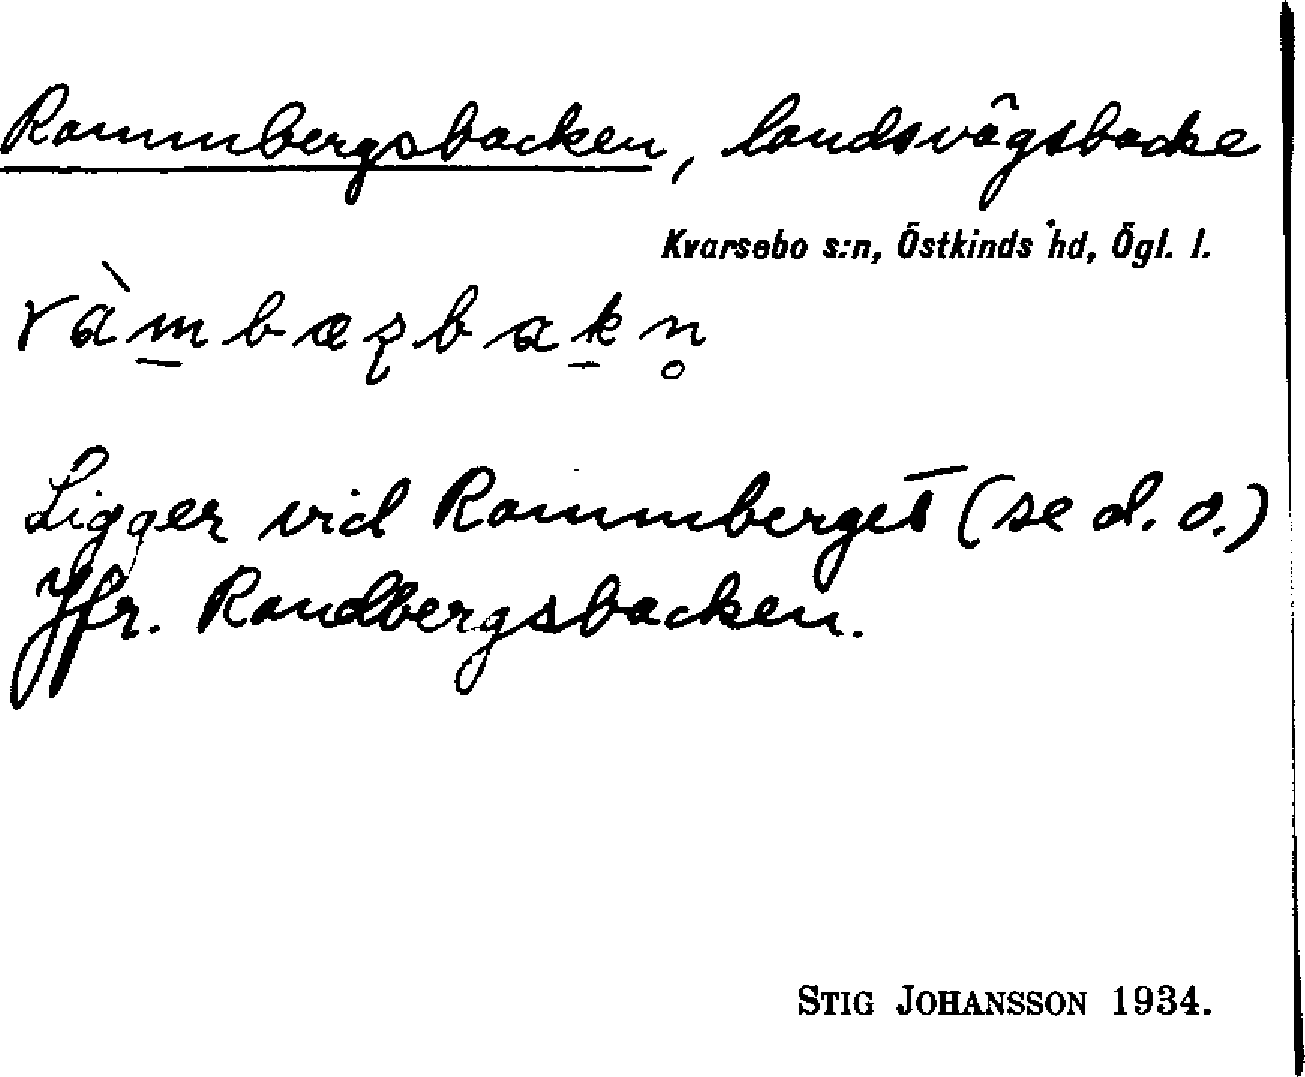 Rammbergsbacken, landsvägsbacke
Kvarsebo s:n, Östkinds hd, Ögl. l.
Ligger vid Rammberget (se d. o.)
Jfr. Randbergsbacken.
STIG JOHANSSON 1934.